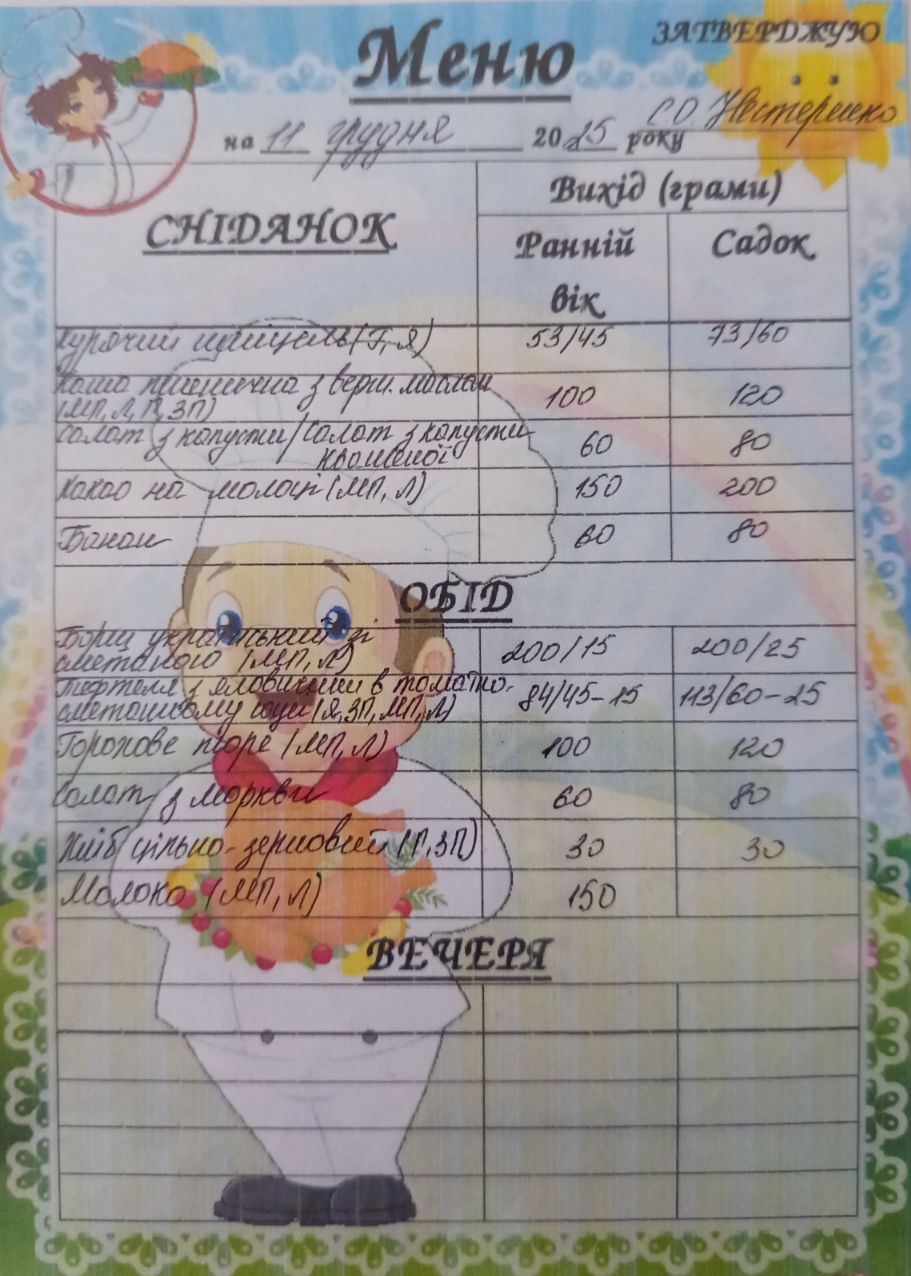 ЗАТВЕРДЖУЮ
Меню
С.О. Нестеренко
на 11 грудня 2025 року
СНІДАНОК
Вихід (грами)
Ранній вік
Садок
Курячий шніцель (Г, Я) 53/45 73/60
Каша пшенична з верш. маслом
(МП, Л, Г, ЗП) 100 120
Салат з капусти/Салат з капусти
квашеної 60 80
Какао на молоці (МП, Л) 150 200
Банан 60 80
ОБІД
Борщ український зі
сметаною (МП, Л) 200/15 200/25
Тефтеля з яловичини в томатно-
сметанному соусі (Я, ЗП, МП, Л) 84/45-15 113/60-25
Горохове пюре (МП, Л) 100 120
Салат з моркви 60 80
Хліб цільно-зерновий (Г, ЗП) 30 30
Молоко (МП, Л) 150
ВЕЧЕРЯ